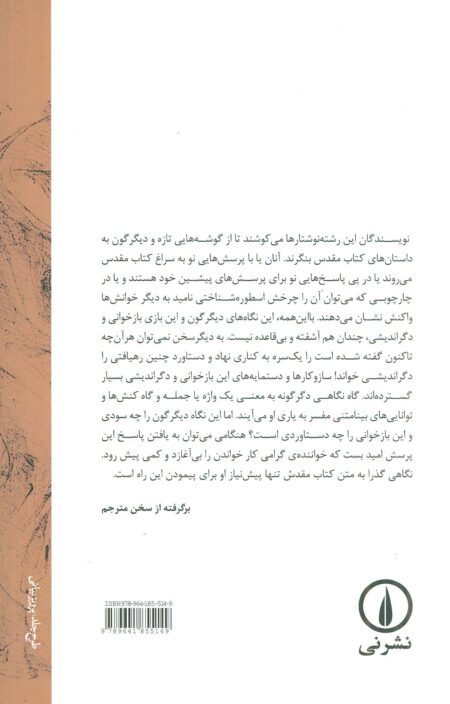 نویسندگان این رشته‌نوشتارها می‌کوشند تا از گوشه‌هایی تازه و دیگرگون به
داستان‌های کتاب مقدس بنگرند. آنان یا با پرسش‌هایی نو به سراغ کتاب مقدس
می‌روند یا در پی پاسخ‌هایی نو برای پرسش‌های پیشین خود هستند و یا در
چارچوبی که می‌توان آن را چرخش اسطوره‌شناختی نامید به دیگر خوانش‌ها
واکنش نشان می‌دهند. بااین‌همه، این نگاه‌های دیگرگون و این بازی بازخوانی و
دگراندیشی، چندان هم آشفته و بی‌قاعده نیست. به دیگرسخن نمی‌توان هرآن‌چه
تاکنون گفته شده است را یک‌سره به کناری نهاد و دستاورد چنین رهیافتی را
دگراندیشی خواند! سازوکارها و دستمایه‌های این بازخوانی و دگراندیشی بسیار
گسترده‌اند. گاه نگاهی دگرگونه به معنی یک واژه یا جمله و گاه کنش‌ها و
توانایی‌های بینامتنی مفسر به یاری او می‌آیند. اما این نگاه دیگرگون را چه سودی
و این بازخوانی را چه دستاوردی است؟ هنگامی می‌توان به یافتن پاسخ این
پرسش امید بست که خواننده‌ی گرامی کار خواندن را بی‌آغازد و کمی پیش رود.
نگاهی گذرا به متن کتاب مقدس تنها پیش‌نیاز او برای پیمودن این راه است.
برگرفته از سخن مترجم
طرح جلد: پرویز بیانی
ISBN 978-964-185-514-9
9 789641 855149
نشرنی